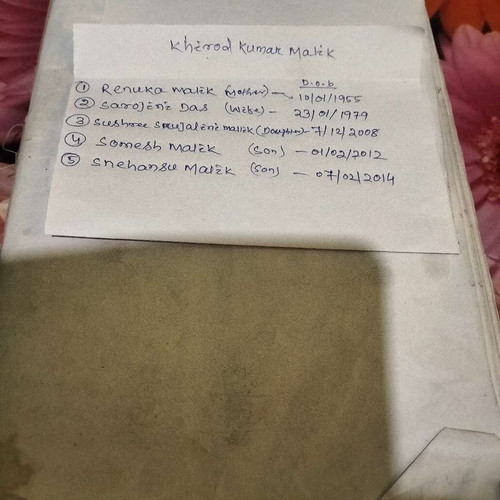 Khirod Kumar Malik
D.o.b
① Renuka Malik (Mother) — 10/01/1955
② Sarojini Das (Wife) — 23/01/1979
③ Sushree Smujalini Malik (Daughter) — 7/12/2008
④ Somesh Malik (Son) — 01/02/2012
⑤ Snehansu Malik (Son) — 07/02/2014